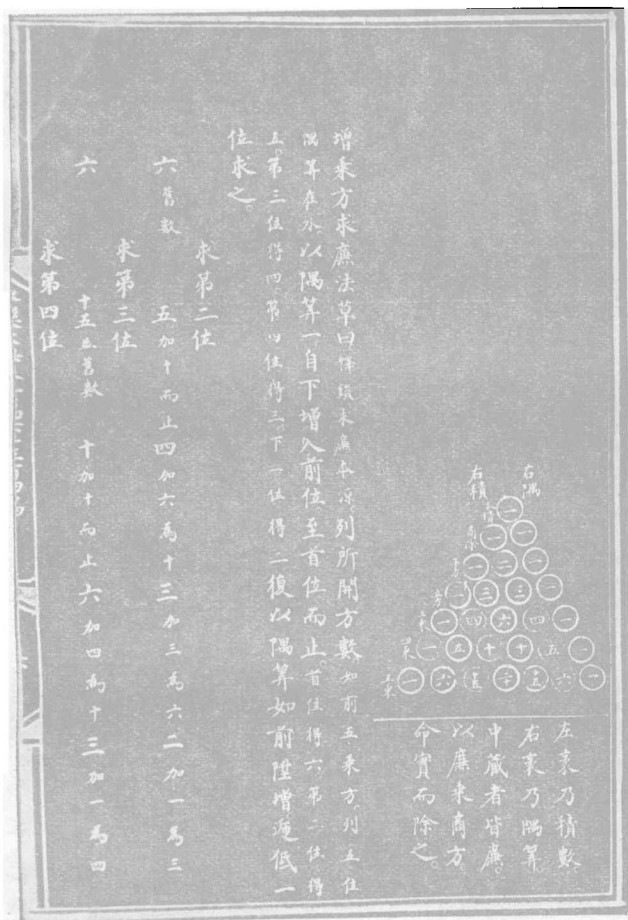 右隅
右積
一
商除 一 一
平方 一 二 一
立方 一 三 三 一
三乘 一 四 六 四 一
四乘 一 五 十 十 五 一
五乘 一 六 十五 二十 十五 六 一
左袤乃積數。
右袤乃隅算。
中藏者皆廉。
以廉乘商方
命實而除之。
增乘方求廉法草曰釋鎖求廉本源。列所開方數。如前五乘方。列五位
隅算在外。以隅算一自下增入前位至首位而止。首位得六第二位得
五。第三位得四第四位得三。下一位得二復以隅算如前陞增遞低一
位求之。
求第二位
六舊數 五加十而止 四加六為十 三加三為六 二加一為三
求第三位
六 十五並舊數 十加十而止 六加四為十 三加一為四
求第四位